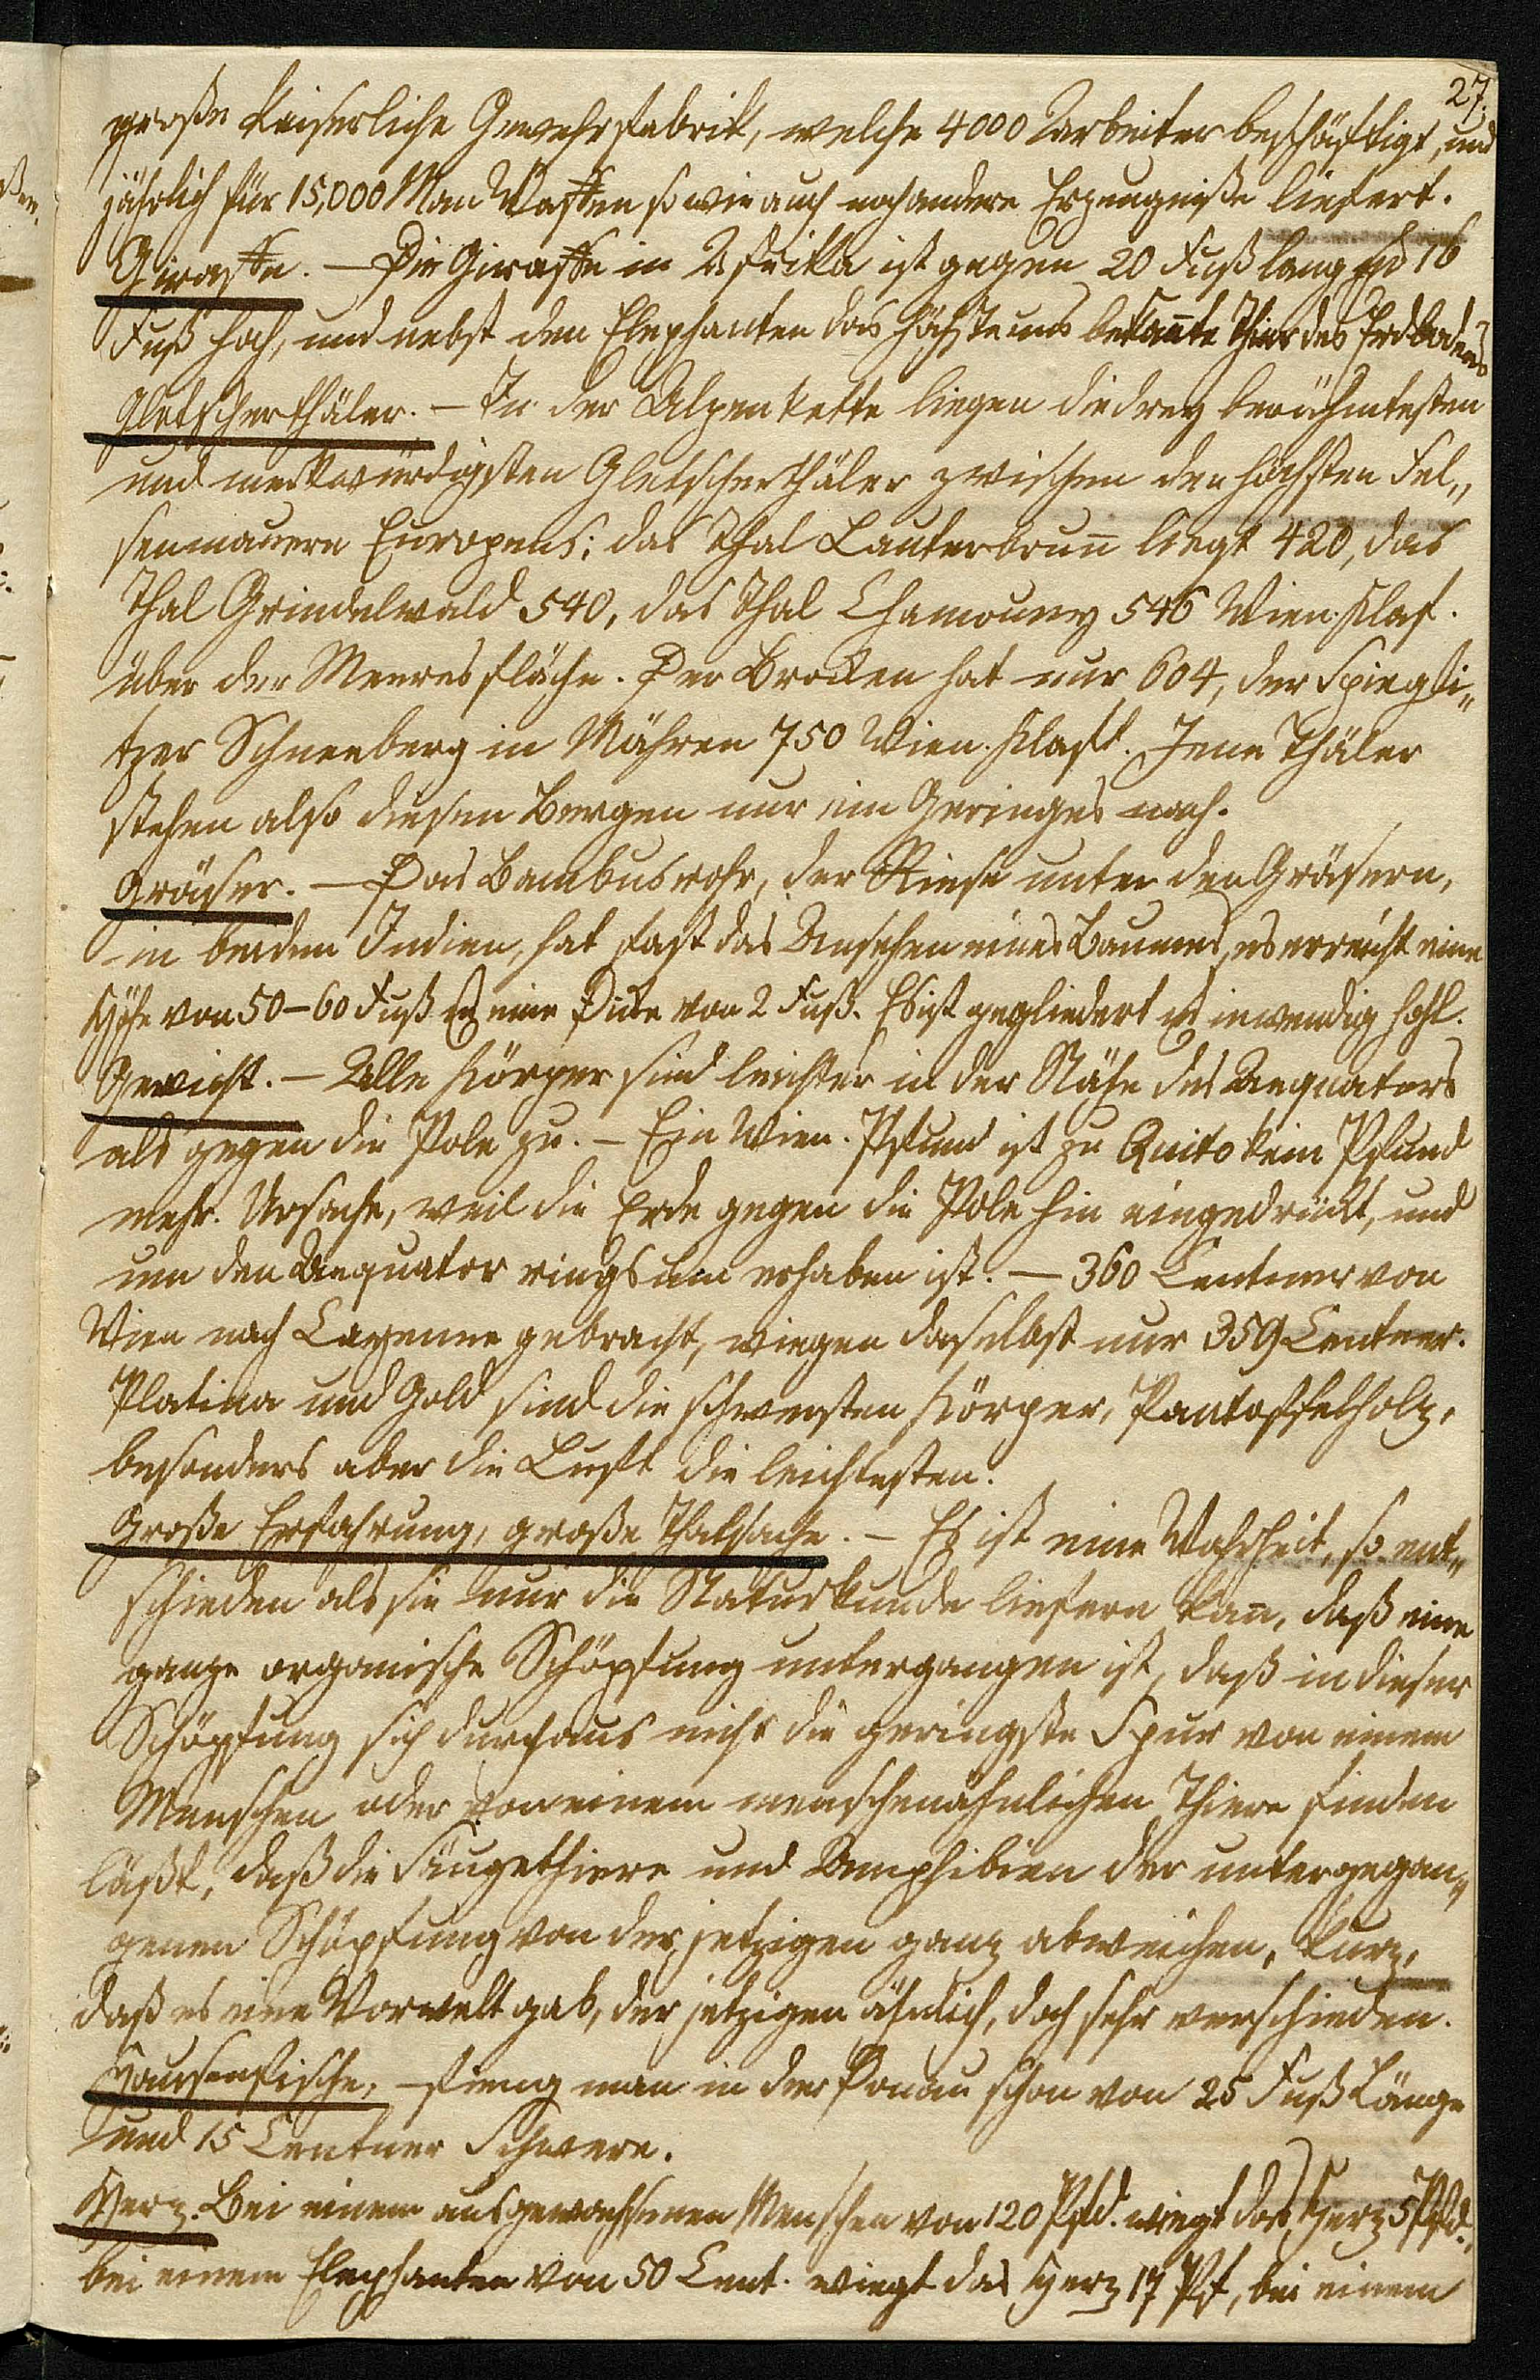 27.
große kaiserliche Gewehrfabrik, welche 4000 Arbeiter beschäftigt, und
jährlich für 15,000 Man Waffen so wie auch noch andere Erzeugniße liefert.
Giraffe. — Die Giraffe in Afrika ist gegen 20 Fuß lang und 16
Fuß hoch, und nebst dem Elephanten das höchste uns bekan̄te Thier des Erdbodens
Gletscherthäler. — In der Alpenkette liegen die drey berühmtesten
und merkwürdigsten Gletscherthäler zwischen den höchsten Fel„
senmauern Europens; das Thal Lauterbrun̄ liegt 420, das
Thal Grindelwald 540, das Thal Chamouny 546 Wien. Klaf.
über der Meeresfläche. Der Brocken hat nur 604, der Spiegli„
tzer Schneeberg in Mähren 750 Wien. Klaft. Jene Thäler
stehen also diesen Bergen nur ein Geringes nach.
Gräser. — Das Bambusrohr, der Riese unter den Gräsern,
in beiden Indien, hat fast das Ansehen eines Baumes, es erreicht eine
Höhe von 50–60 Fuß und eine Dicke von 2 Fuß. Es ist gegliedert und inwendig hohl.
Gewicht. — Alle Körper sind leichter in der Nähe des Aequators
als gegen die Pole zu. — Ein Wien. Pfund ist zu Quito kein Pfund
mehr. Ursache, weil die Erde gegen die Pole hin eingedrückt, und
um den Aequator ringsum erhaben ist. — 360 Centner von
Wien nach Cayenne gebracht, wiegen daselbst nur 359 Centner.
Platina und Gold sind die schwersten Körper, Pantoffelholz,
besonders aber die Luft die leichtesten.
Große Erfahrung, große Thatsache. — Es ist eine Wahrheit, so ent„
schieden als sie nur die Naturkunde liefern kan̄, daß eine
ganze organische Schöpfung untergangen ist, daß in dieser
Schöpfung sich durchaus nicht die geringste Spur von einem
Menschen oder von einem menschenähnlichen Thiere finden
läßt, daß die Säugethiere und Amphibien der untergegan„
genen Schöpfung von der jetzigen ganz abweichen, kurz,
daß es eine Vorwelt gab, der jetzigen ähnlich, doch sehr verschieden.
Hausenfische, — fieng man in der Donau schon von 25 Fuß Länge
und 15 Centner Schwere.
Herz. Bei einem ausgewachsenen Menschen von 120 Pfd. wiegt das Herz 5 Pfd.,
bei einem Elephanten von 50 Cent. wiegt das Herz 17 Pf, bei einem